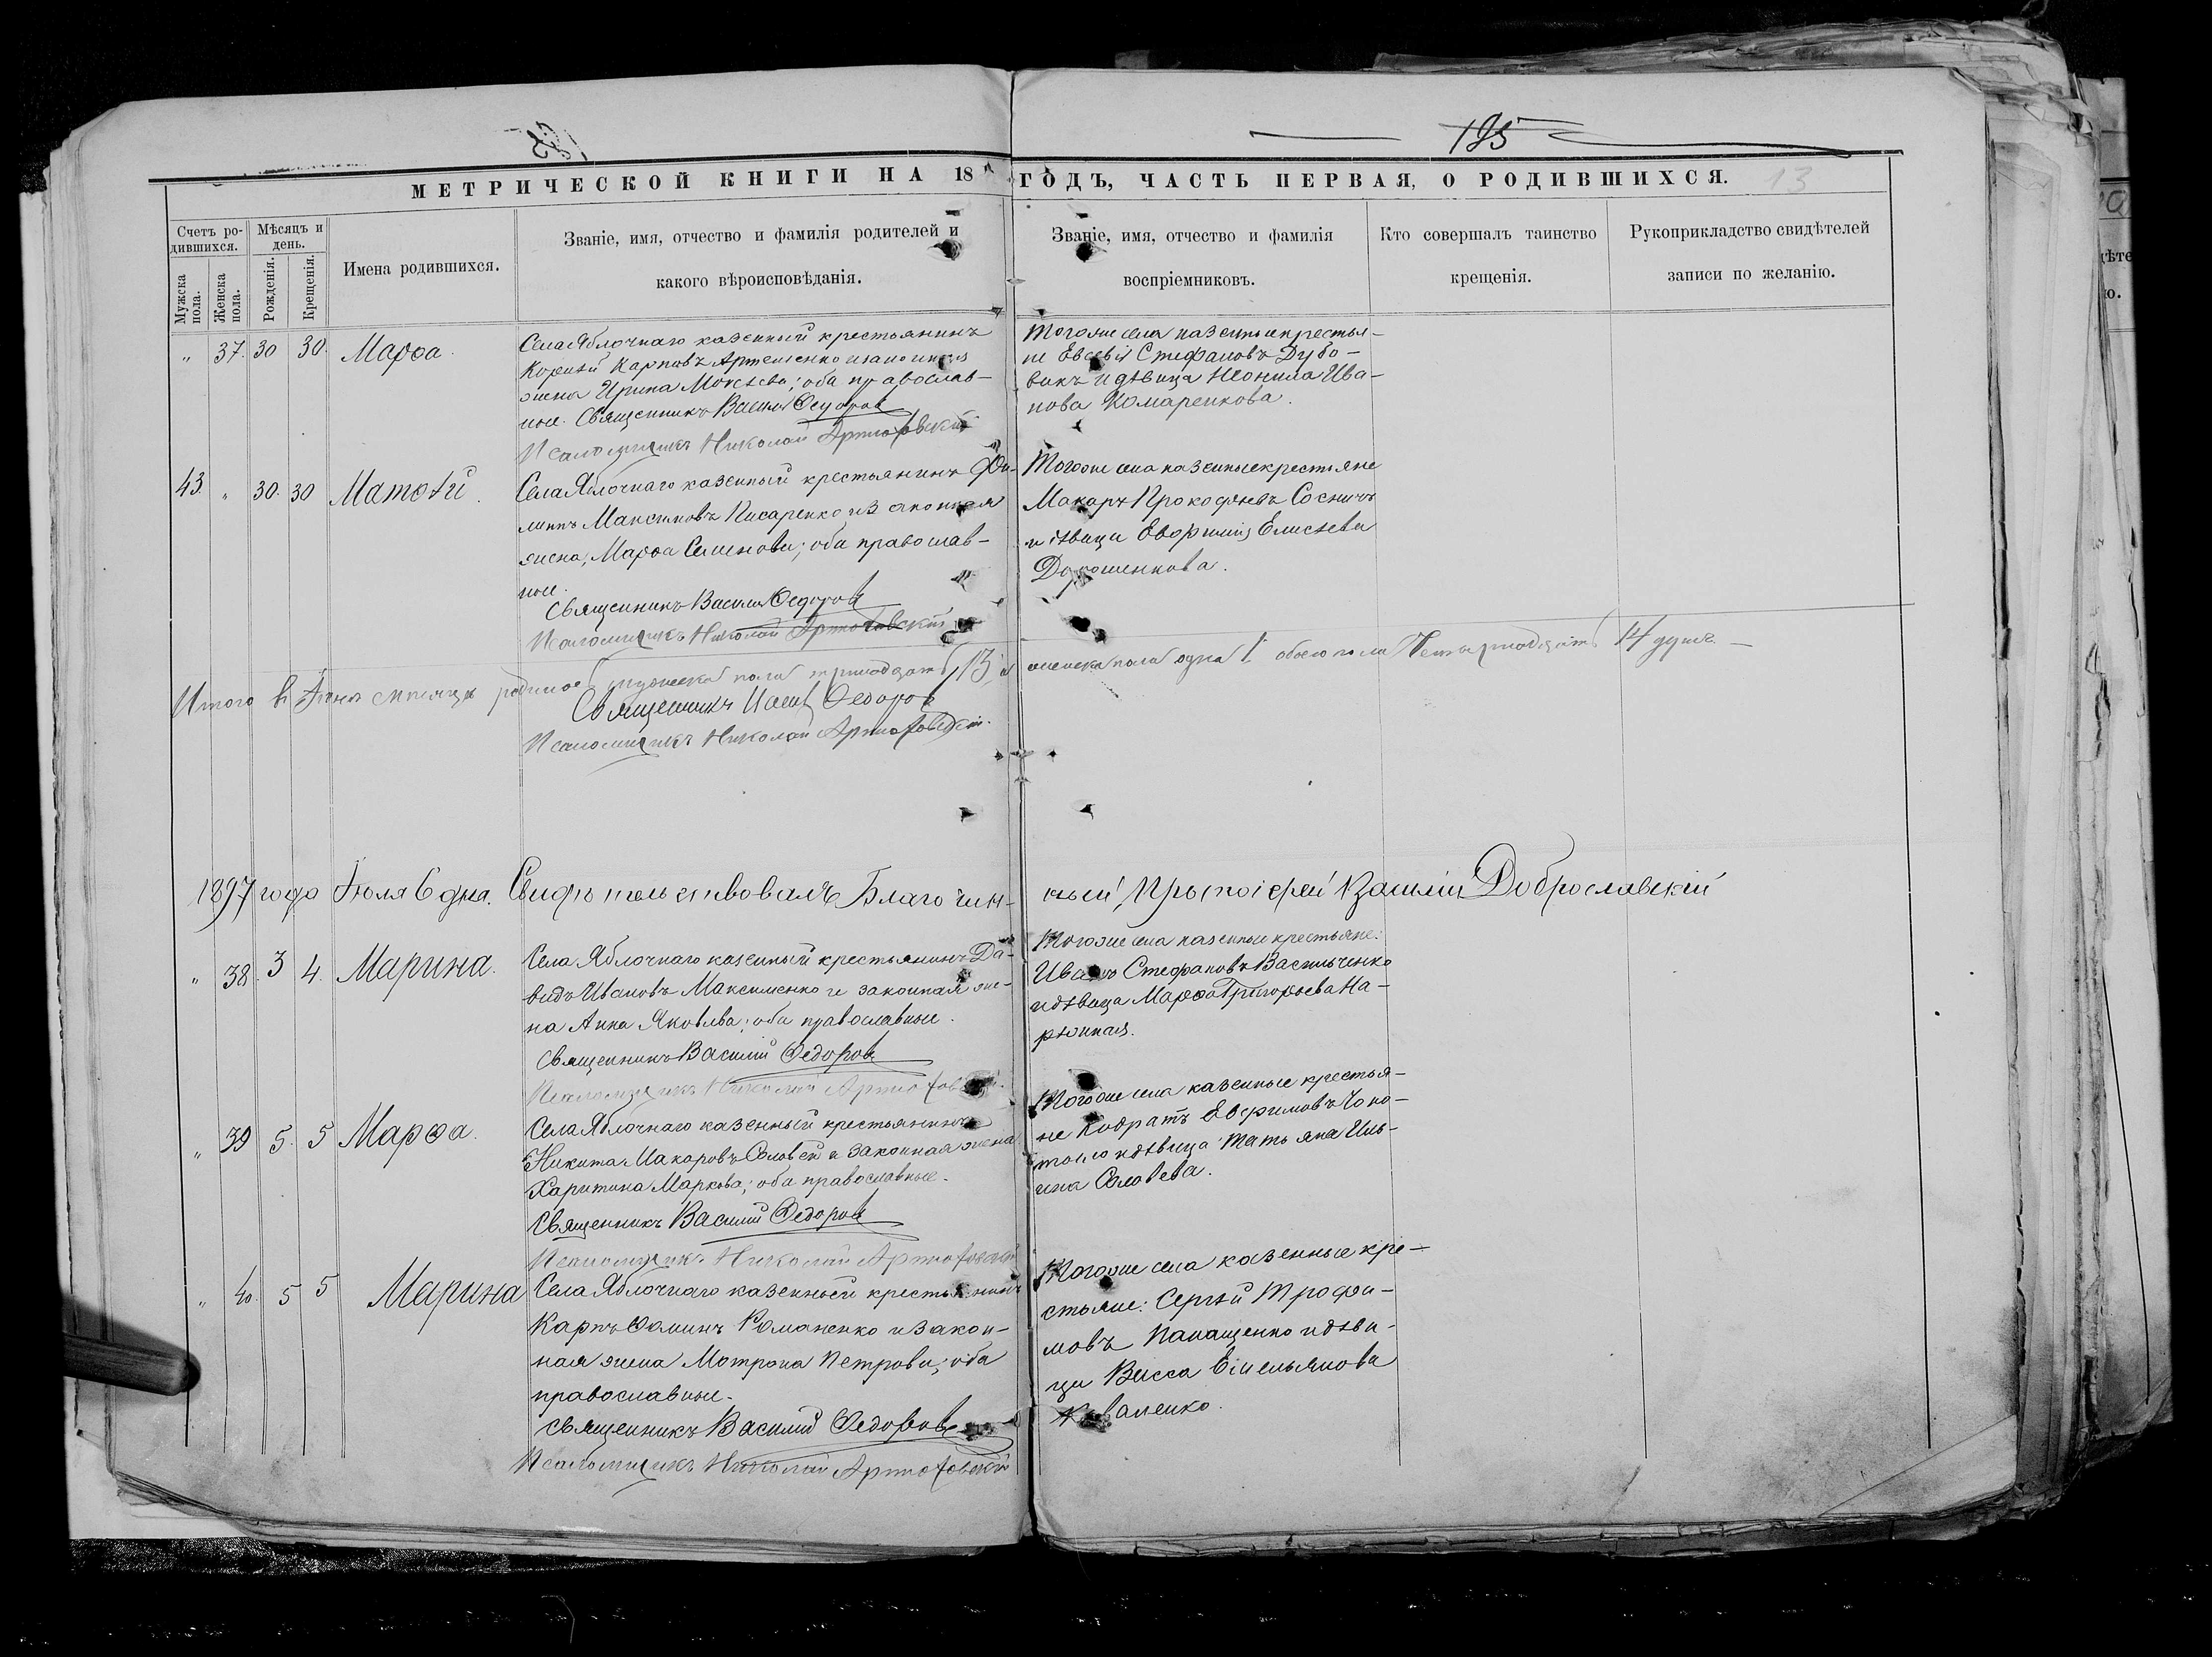 195
МЕТРИЧЕСКОЙ КНИГИ НА 18 ГОДЪ, ЧАСТЬ ПЕРВАЯ, О РОДИВШИХСЯ.
13
Счетъ родившихся.
Мужеска пола.
Женска пола.
Мѣсяцъ и день.
Рожденія.
Крещенія.
Имена родившихся.
Званіе, имя, отчество и фамилія родителей и
какого вѣроисповѣданія.
Званіе, имя, отчество и фамилія
воспріемниковъ.
Кто совершалъ таинство
крещенія.
Рукоприкладство свидѣтелей
записи по желанію.
„ 37. 30 30. Марѳа.
Села Яблочнаго казенный крестьянинъ
Карповъ Артеменко
жена Ирина; оба православ-
ные. Священникъ Василій Ѳедоровъ
Псаломщикъ Николай
Тогоже села казенные крестья-
не Евсевій Стефановъ Дубо-
викъ и дѣвица Неонила Ива-
нова Комаренкова.
43. „ 30. 30 Матѳій.
Села Яблочнаго казенный крестьянинъ Фи-
липпъ Максимовъ Писаренко и законная
жена, Марѳа Семенова; оба православ-
ные.
Священникъ Василій Ѳедоровъ
Псаломщикъ Николай
Тогоже села казенные крестьяне
Макаръ Прокофьевъ
и дѣвица Евфимія Елисѣева
Дорошенкова.
Итого въ Іюнѣ мѣсяцѣ родилось мужеска пола тринадцать 13, и женска пола одна 1 обоего пола Четырнадцать 14 душъ. —
Священникъ Ѳедоровъ
Псаломщикъ Николай
1897 года Іюля 6 дня. Свидѣтельствовалъ Благочин-
ный, Протоіерей Василій Доброславскій
„ 38. 3 4. Марина.
Села Яблочнаго казенный крестьянинъ Да-
видъ Ивановъ Максименко и законная же-
на Анна Яковлева; оба православные.
Священникъ Василій Ѳедоровъ
Псаломщикъ Николай
Тогоже села казенные крестьяне:
Иванъ Стефановъ Васильченко
и дѣвица Марѳа Григорьева На-
„ 39 5. 5 Марѳа.
Села Яблочнаго казенный крестьянинъ
Никита Макаровъ Соловей и законная жена
Харитина Маркова; оба православные.
Священникъ Василій Ѳедоровъ
Псаломщикъ Николай
Тогоже села казенные крестья-
не Кодратъ Евфимовъ
и дѣвица Татьяна Иль-
ина Соловева.
„ 40. 5 5 Марина
Села Яблочнаго казенный крестьянинъ
Карпъ Ѳоминъ Романенко и закон-
ная жена Матрона Петрова; оба
православные.
Священникъ Василій Ѳедоровъ
Псаломщикъ Николай
Тогоже села казенные кре-
стьяне: Сергѣй Трофи-
мовъ Панащенко и дѣви-
ца Васса Емельянова
Коваленко.